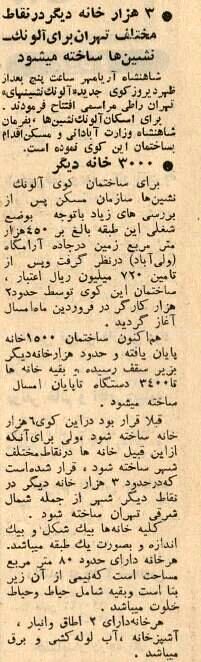 ● ۳ هزار خانه دیگر در نقاط
مختلف تهران برای آلونک‌ـ
نشین‌ها ساخته میشود
شاهنشاه آریامهر ساعت پنج بعداز
ظهر دیروز کوی جدید «آلونک نشینهای»
تهران را طی مراسمی افتتاح فرمودند .
برای اسکان آلونک نشین‌ها ، بفرمان
شاهنشاه وزارت آبادانی و مسکن اقدام
بساختمان این کوی نموده است.
● ۳۰۰۰ خانه دیگر
برای ساختمان کوی آلونک
نشین‌ها سازمان مسکن پس از
بررسی های زیاد باتوجه بوضع
شغلی این طبقه بالغ بر ۴۵۰هزار
متر مربع زمین درجاده آرامگاه
(ولی‌آباد) درنظر گرفت وپس از
تامین ۷۲۰ میلیون ریال اعتبار ،
ساختمان این کوی توسط حدود۲
هزار کارگر در فروردین ماه‌امسال
آغاز گردید .
هم‌اکنون ساختمان ۱۵۰۰خانه
پایان یافته و حدود هزارخانه‌دیگر
بزیر سقف رسیده و بقیه خانه ها
تا۳۴۰۰ دستگاه تاپایان امسال
ساخته میشود .
قبلا قرار بود دراین کوی۶هزار
خانه ساخته شود ، ولی برای‌آنکه
ازاین قبیل خانه ها درنقاط‌مختلف
شهر ساخته شود ، قرار شده‌است
که‌درحدود ۳ هزار خانه دیگر در
نقاط دیگر شهر از جمله شمال
شرقی تهران ساخته شود .
کلیه خانه‌ها بیك شکل و بیك
اندازه و بصورت یك طبقه میباشد.
هرخانه دارای حدود ۸۰ متر مربع
مساحت است که‌نیمی از آن زیر
بنا است وبقیه شامل حیاط وحیاط
خلوت میباشد .
هرخانه‌دارای ۲ اطاق وانبار ،
آشپز خانه ،آب لوله‌کشی و برق
میباشد .